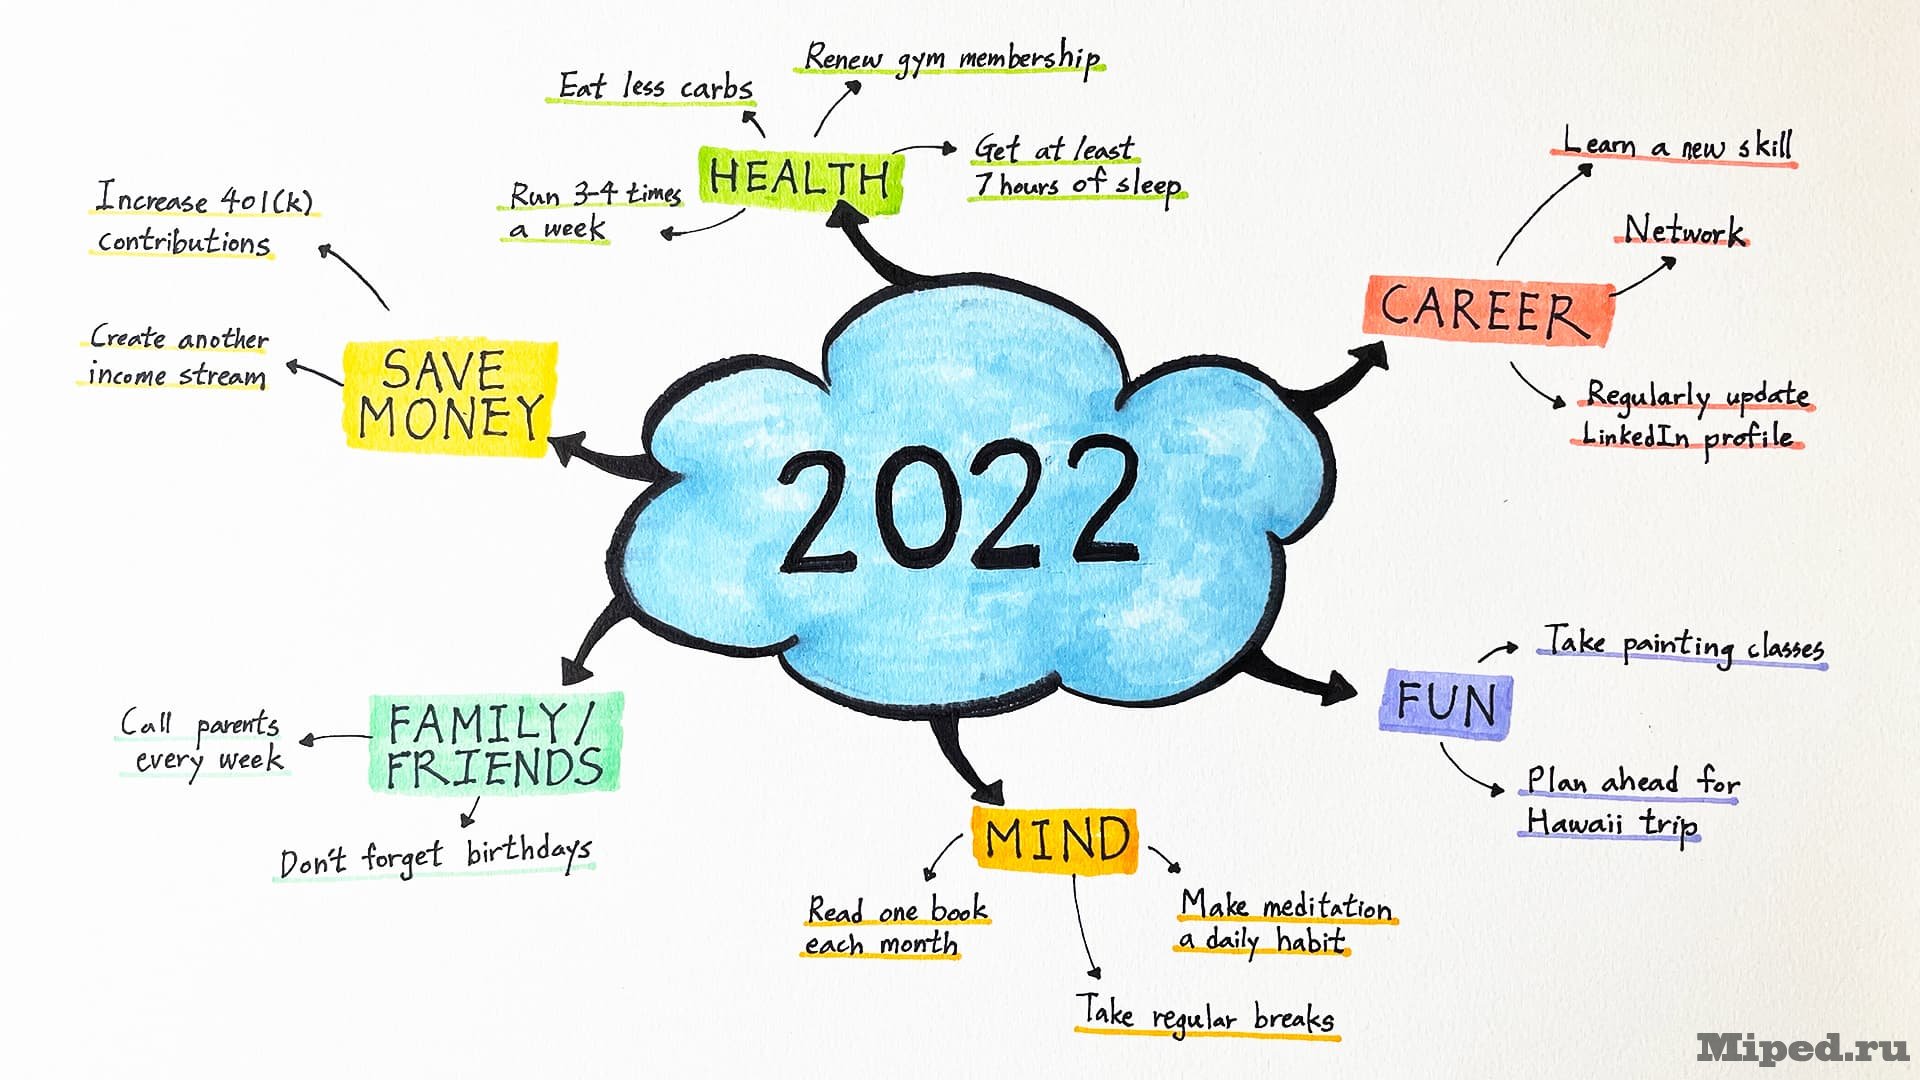 2022
HEALTH
Eat less carbs
Renew gym membership
Get at least
7 hours of sleep
Run 3-4 times
a week
CAREER
Learn a new skill
Network
Regularly update
LinkedIn profile
FUN
Take painting classes
Plan ahead for
Hawaii trip
MIND
Read one book
each month
Take regular breaks
Make meditation
a daily habit
FAMILY/
FRIENDS
Call parents
every week
Don't forget birthdays
SAVE
MONEY
Increase 401(k)
contributions
Create another
income stream
Miped.ru